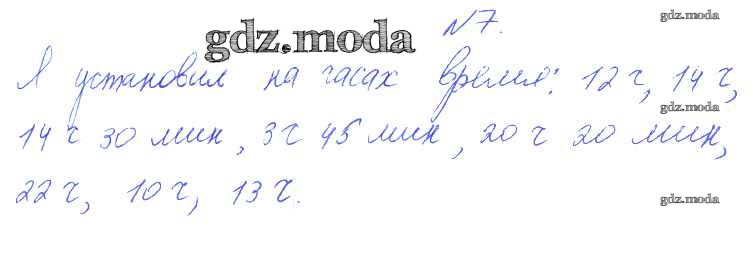 gdz.moda
N7.
gdz.moda
Я установил на часах время: 12 ч, 14 ч,
gdz.moda
14 ч 30 мин, 3 ч 45 мин, 20 ч 20 мин,
22 ч, 10 ч, 13 ч.
gdz.moda